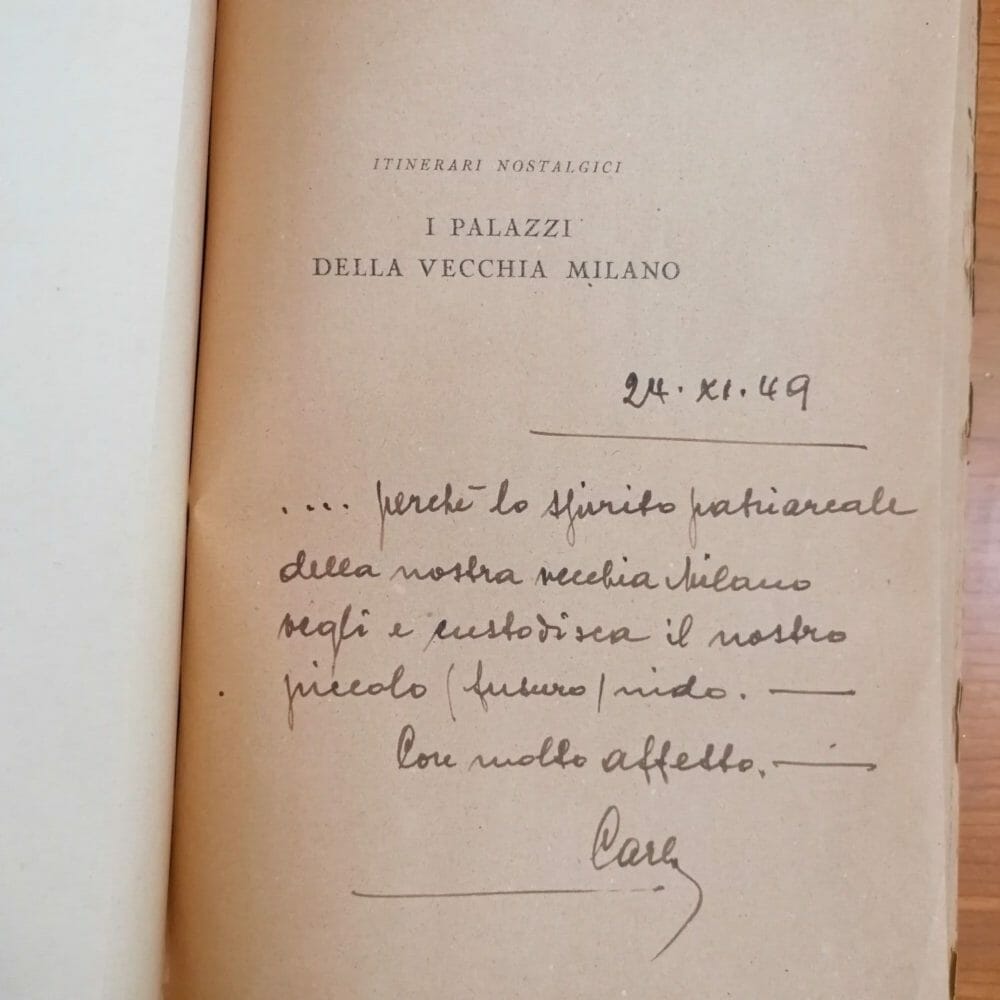 ITINERARI NOSTALGICI
I PALAZZI
DELLA VECCHIA MILANO
24. XI. 49
.... perchè lo spirito patriarcale
della nostra vecchia Milano
vegli e custodisca il nostro
piccolo (futuro) nido. —
Con molto affetto. —